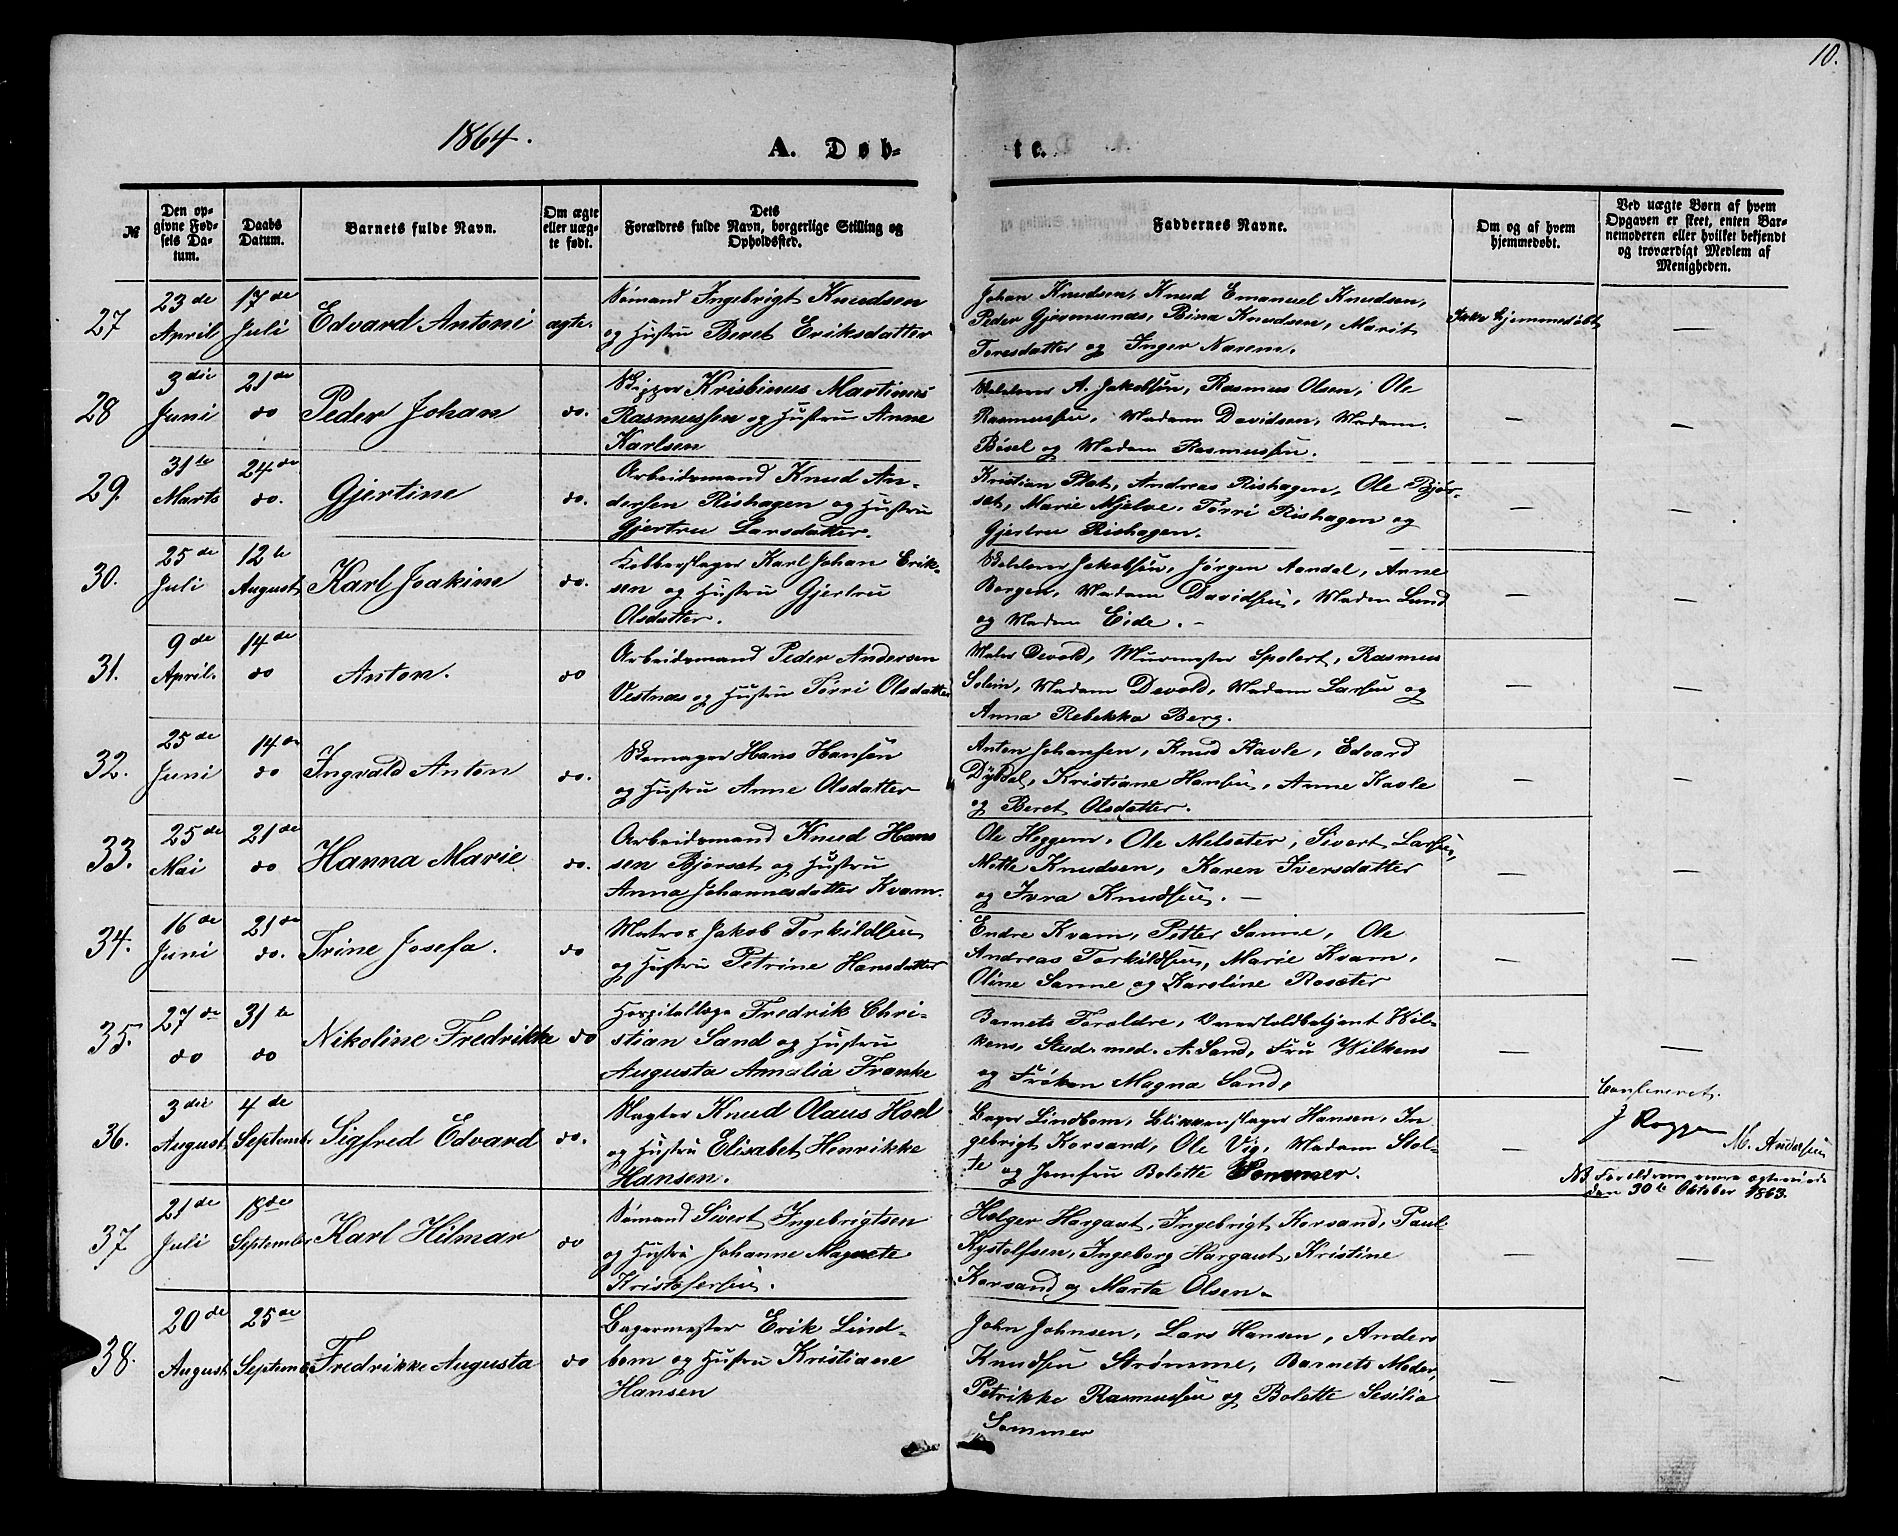 10.
1864.
A. Døb-
te.
№
Den op-
givne Fød-
sels Da-
tum.
Daabs
Datum.
Barnets fulde Navn.
Om ægte
eller uæg-
te født.
Dets
Forældres fulde Navn, borgerlige Stilling og
Opholdssted.
Faddernes Navne.
Om og af hvem
hjemmedøbt.
Ved uægte Børn af hvem
Opgaven er skeet, enten Bar-
nemoderen eller hvilket bekjendt
og troværdigt Medlem af
Menigheden.
27
23de
April
17de
Juli
Edvard Antoni
ægte.
Sømand Ingebrigt Knudsen
og Hustru Beret Eriksdatter
Johan Knudsen, Knud Emanuel Knudsen,
Peder Gjørmunds, Bina Knudsen, Marit
Toresdatter og Inger Narem.
Ikke hjemmedøbt
—
28
3die
Juni
21de
do
Peder Johan
do.
Skipper Kristinus Martinus
Rasmussen og Hustru Anne
Karlsen
A. Jakobsen, Rasmus Olsen, Ole
Rasmussen, Madam Davidsen, Madam
Bøsel og Madam Rasmussen.
—
—
29.
31te
Marts
24de
do.
Gjertine
do.
Arbeidsmand Knud An-
dersen Rishagen og Hustru
Gjertru Larsdatter.
Kristian Plat, Andreas Rishagen, Ole Bjør-
set, Marie Mjelve, Torri Rishagen og
Gjertru Rishagen.
—
—
30.
25de
Juli
12te
August
Karl Joakim
do.
Kobberslager Karl Johan Erik-
sen og Hustru Gjertru
Olsdatter.
Jakobsen, Jørgen Aandal, Arne
Borgen, Madam Davidsen, Madam Lund
og Madam Eide. -
—
—
31.
9de
April.
14de
do
Anton.
do
Arbeidsmand Peder Andersen
Vestnæs og Hustru Torri Olsdatter
Maler Devold, Muurmester Spolert, Rasmus
Solem, Madam Devold, Madam Larsen og
Anna Rebekka Berg.
—
—
32.
25de
Juni
14de
do
Ingvald Anton
do.
Skomager Hans Hansen
og Hustru Anne Olsdatter
Anton Johansen, Knud Kavle, Edvard
Dybdal, Kristiane Hansen, Anne Kavle
og Beret Olsdatter.
—
—
33.
25de
Mai
21de
do
Hanna Marie
do.
Arbeidsmand Knud Hans
sen Bjørset og Hustru
Anna Johannesdatter Kvam.
Ole Heggem, Ole Melseter, Sivert Larsen,
Mette Knudsen, Karen Iversdatter
og Ivra Knudsen. —
—
—
34.
16de
Juni
21de
do.
Trine Josefa.
do
Matros Jakob Torkildsen
og Hustru Petrine Hansdatter
Endre Kvam, Petter Sanne, Ole
Andreas Torkildsen, Marie Kvam,
Oline Sanne og Karoline Roseter
—
—
35.
27de
do
31te
do
Nikoline Fredrikke
do
Hospitallæge Fredrik Chri-
stian Sand og Hustru
Augusta Amalia Franke
Barnets Forældre, Overtoldbetjent Wil-
kens, Stud. med. A. Sand, Fru Wilkens
og Frøken Magna Sand.
—
—
Confereret.
J Rogge
M. Andersen
36.
3die
August
4de
Septemb.
Sigfred Edvard
do.
Slagter Knud Olaus Hoel
og Hustru Elisabet Henrikke
Hansen.
Bager Lindbom, Blikkenslager Hansen, In
gebrigt Korsand, Ole Vig, Madam Stol-
te og Jomfru Bolette Sommer.
—
NB Forældrene
den 30te Oktober 1863.
37
21de
Juli
18de
September
Karl Hilmar
do
Sømand Sivert Ingebrigtsen
og Hustru Johanne Magrete
Kristofersen.
Holger Hargaut, Ingebrigt Korsand, Paul
Kystolfsen, Ingeborg Hargaut, Kristine
Korsand og Marta Olsen.
—
—
38.
20de
August
25de
Septemb.
Fredrikke Augusta
do
Bagermester Erik Lind-
bom og Hustru Kristiane
Hansen
John Johnsen, Lars Hansen, Anders
Knudsen Strømme, Barnets Moder,
Petrikke Rasmussen og Bolette Sesilia
Sommer
—
—